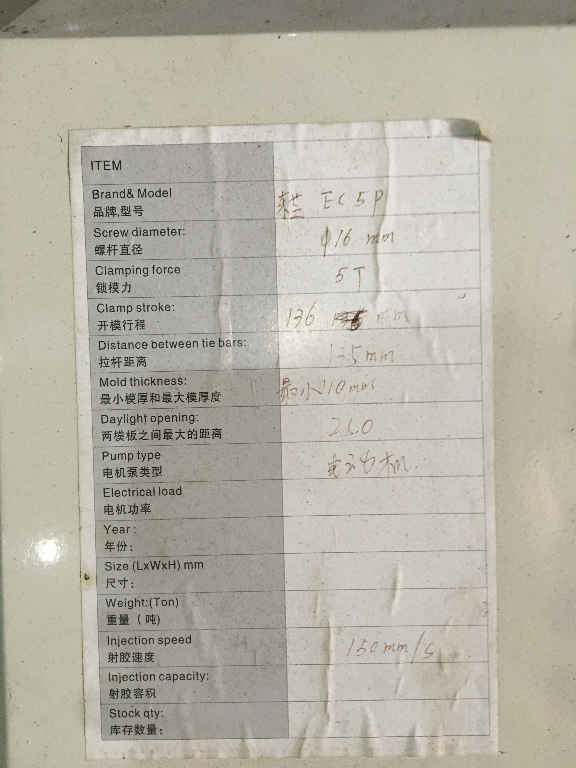 ITEM
Brand& Model
品牌,型号
EC5P
Screw diameter:
螺杆直径
φ16 mm
Clamping force
锁模力
5T
Clamp stroke:
开模行程
136 mm
Distance between tie bars:
拉杆距离
135mm
Mold thickness:
最小模厚和最大模厚度
最小110mm
Daylight opening:
两模板之间最大的距离
250
Pump type
电机泵类型
电动机
Electrical load
电机功率
Year:
年份:
Size (LxWxH) mm
尺寸:
Weight:(Ton)
重量(吨)
Injection speed
射胶速度
150mm/s
Injection capacity:
射胶容积
Stock qty:
库存数量: